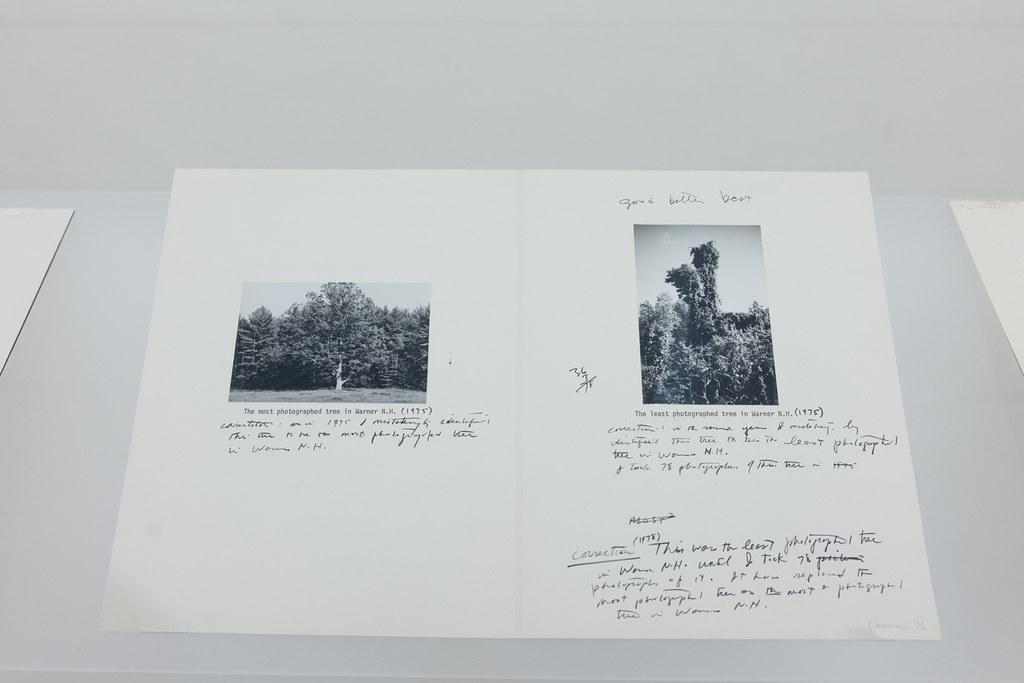 The most photographed tree in Warner N.H. (1975)
1975 I mistakenly identified
this tree to be the most photographed tree
in Warner N.H.
good better best
The least photographed tree in Warner N.H. (1975)
correction: in the same year I
identified this tree to be the least photographed
tree in Warner N.H.
I took 78 photographs of this tree in 1975
Most?
(1978)
correction This was the least photographed tree
in Warner N.H. until I took 78
photographs of it. It has replaced the
most photographed tree as the most photographed
tree in Warner N.H.